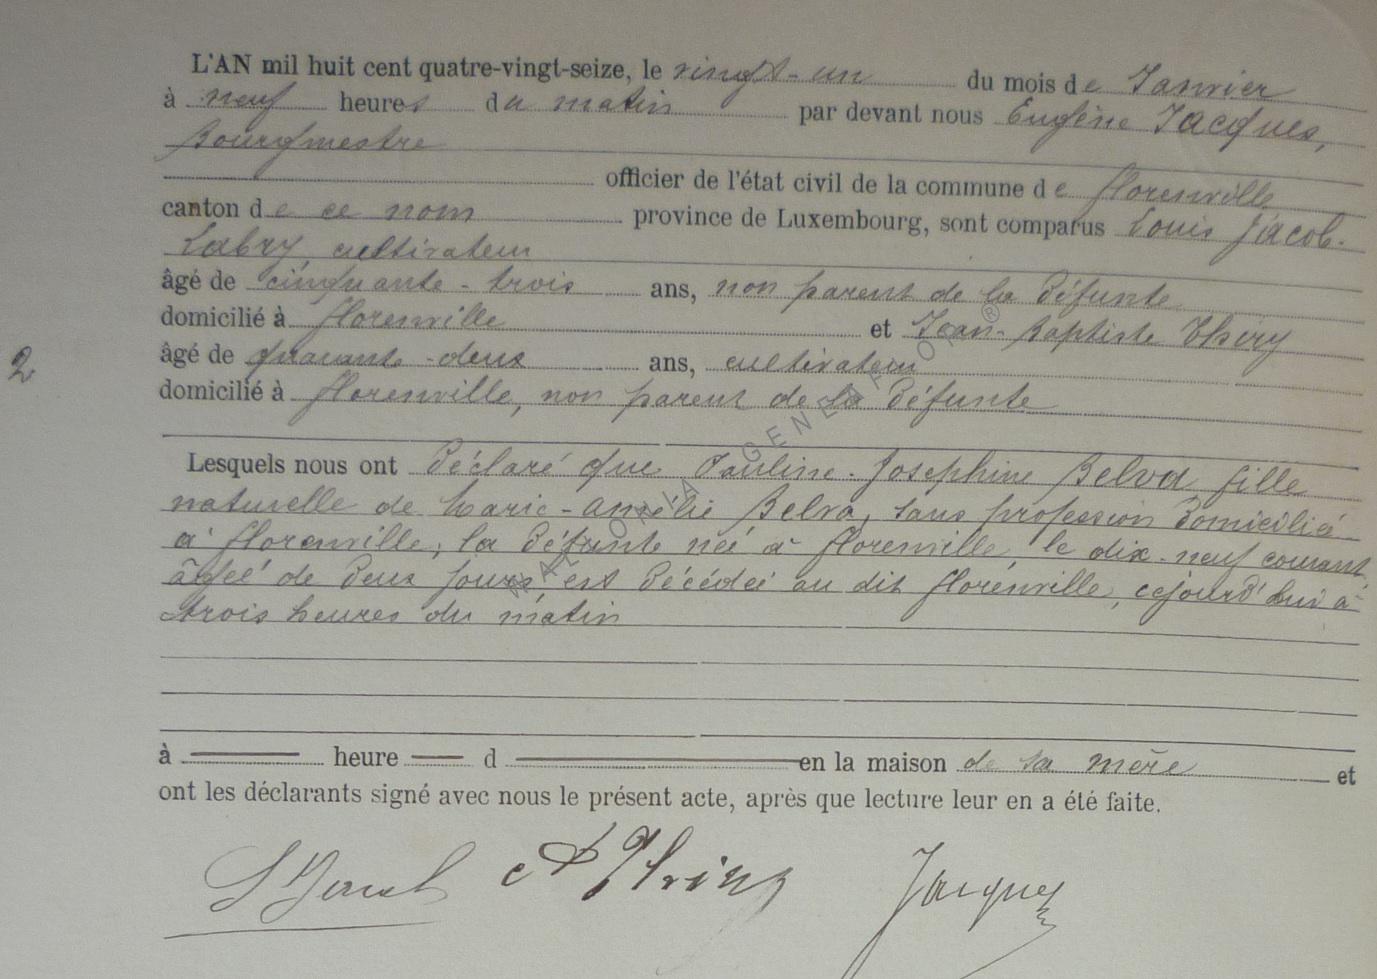 L'AN mil huit cent quatre-vingt-seize, le vingt-un du mois de Janvier
à neuf heures du matin par devant nous Eugène Jacques,
Bourgmestre
officier de l'état civil de la commune de florenville
canton de ce nom province de Luxembourg, sont comparus Louis Jacob-
Labry, cultivateur
âgé de cinquante-trois ans, non parent de la défunte
domicilié à florenville et Jean-Baptiste Thiry
2 âgé de quarante-deux ans, cultivateur
domicilié à florenville, non parent de la défunte
Lesquels nous ont déclaré que Pauline-Josephine Belva fille
naturelle de Marie-Amélie Belva, sans profession domiciliée
à florenville, la défunte née à florenville le dix-neuf courant,
âgée de deux jours, est décédée au dit florenville, cejourd'hui à
trois heures du matin
à heure d en la maison de sa mère et
ont les déclarants signé avec nous le présent acte, après que lecture leur en a été faite.
L Jacob Thiry Jacques